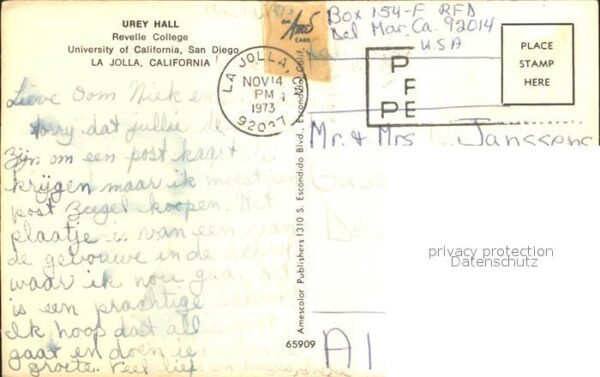 UREY HALL
Revelle College
University of California, San Diego
LA JOLLA, CALIFORNIA
Ames
CARD
Box 154-F RFD
Del Mar, Ca. 92014
USA
PLACE
STAMP
HERE
LA JOLLA,
NOV 14
PM
1973
92037
P
F
PE
Lieve Oom Niek en
sorry dat jullie de
Zijn om een post kaart
krijgen maar ik moest een
post Zegel koopen. Het
plaatje is van een van
de gevouwe in de school
waar ik nou gaa. Het
is een prachtige school
Ik hoop dat alles goet
gaat en doen ie
groete. Veel liefs en kusjes,
Mr. & Mrs. Janssens
De
AI
Amescolor Publishers 1310 S. Escondido Blvd., Escondido, Calif.
65909
privacy protection
Datenschutz